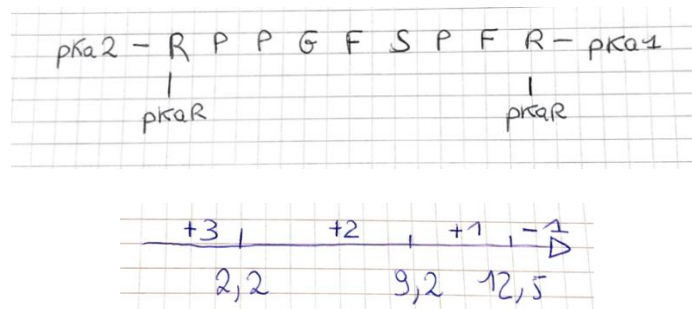 pKa2 - R P P G F S P F R - pKa1
pKaR pKaR
+3 +2 +1 -1
2,2 9,2 12,5